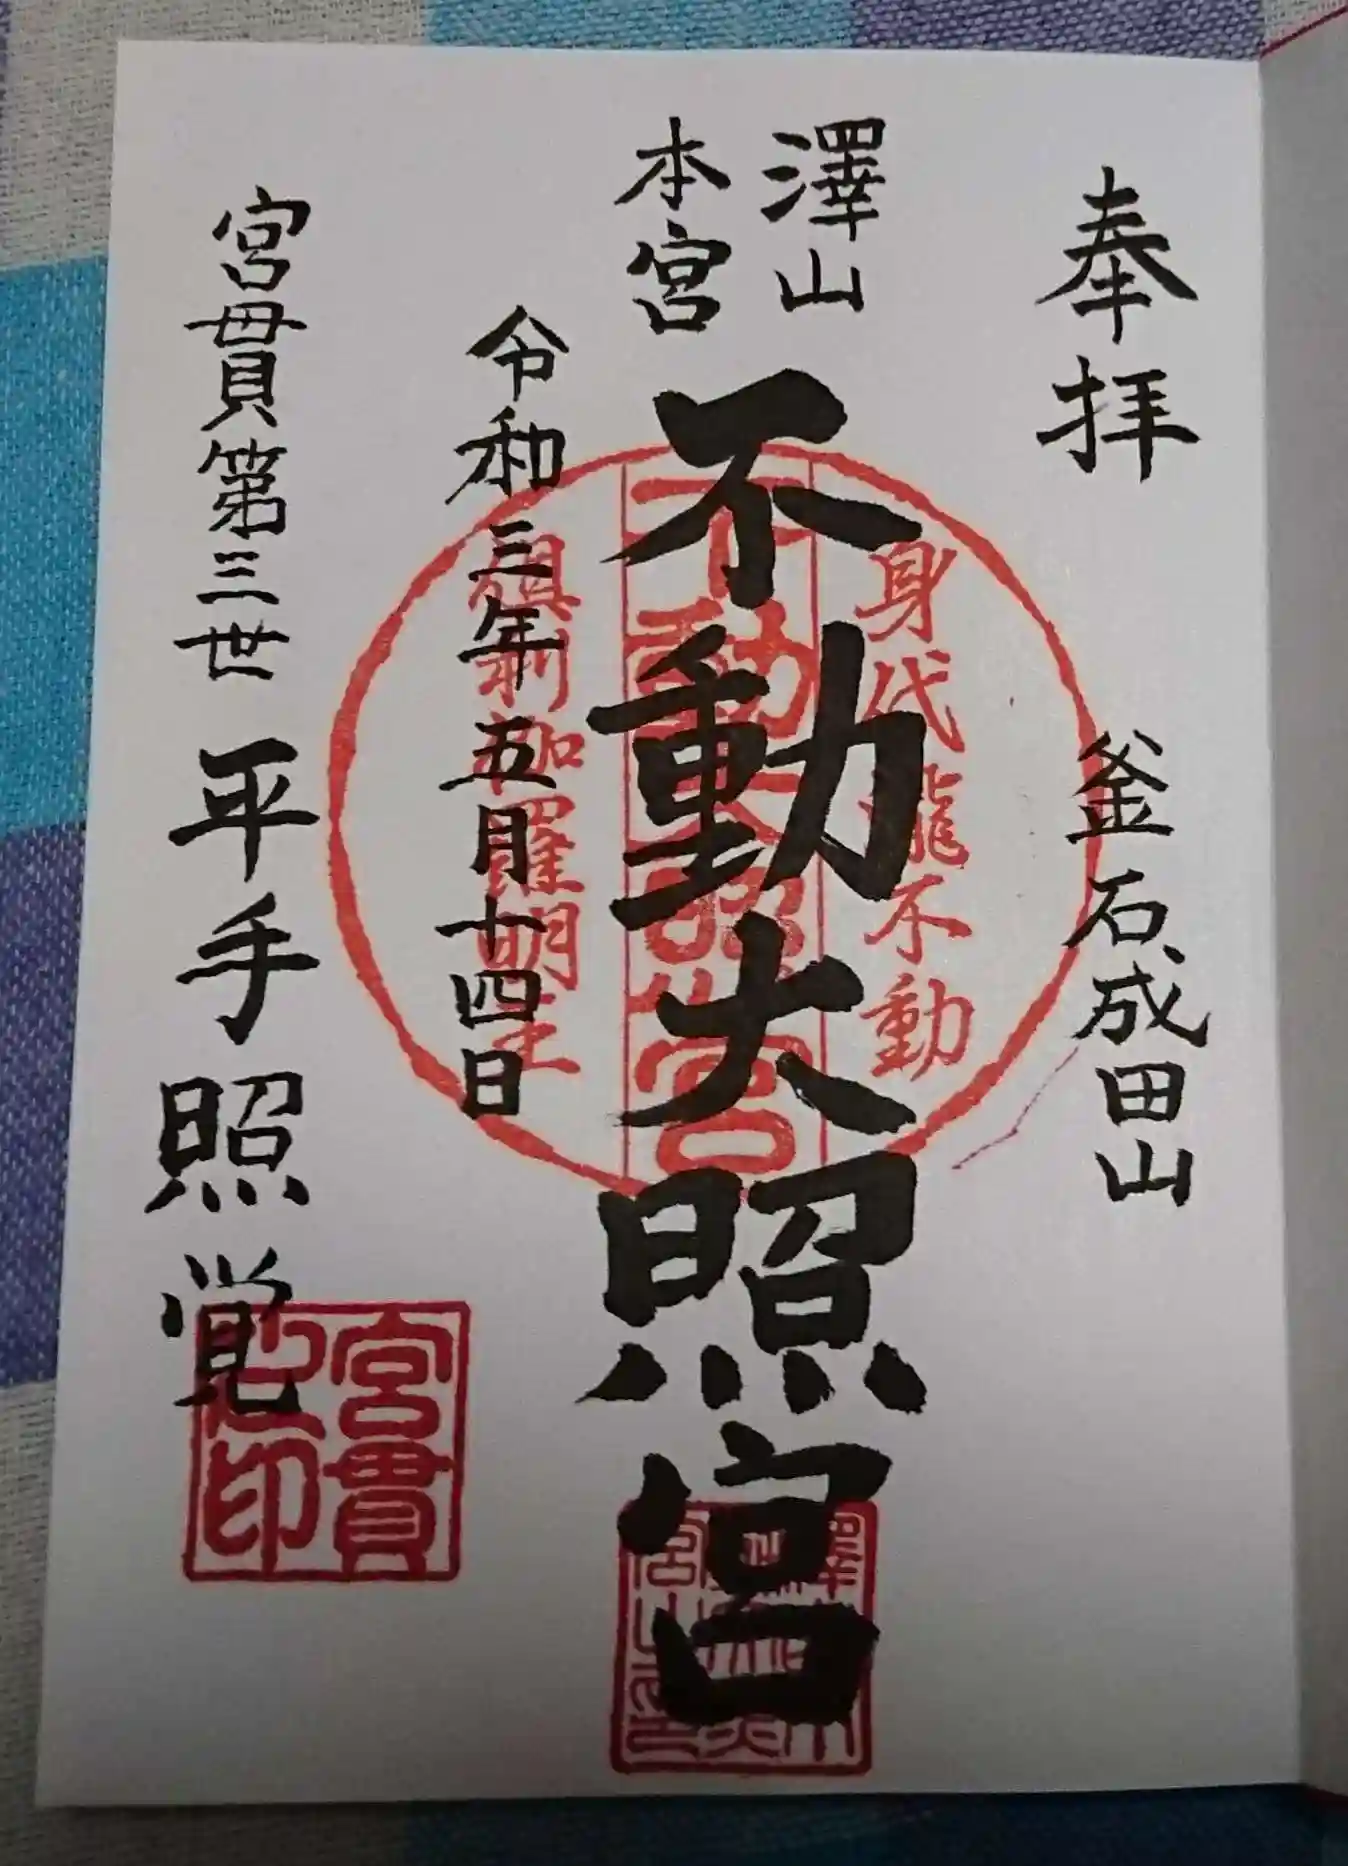 奉拝
釜石成田山
澤山
本宮
不動大照宮
身代瀧不動
不動大照宮
倶利伽羅明王
令和三年五月十四日
宮貫第三世 平手照覚
宮貫
之印